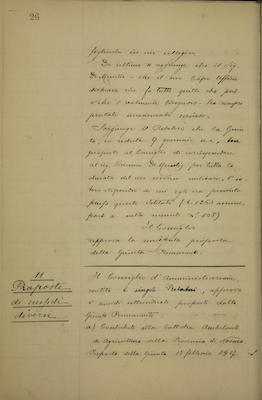 26
figlinolo in un collegio.
De ultimo si aggiunge che il Sig.
De Minellis - che è un Capo Ufficio
che fa tutto quello che può
e che è realmente bisognoso - ha sempre
prestato
Soggiunge il Relatore che la Giun-
ta, in seduta 9 gennaio u. s.,
proposto al Consiglio di corrispondere
al sig. per tutta la
durata del suo servizio militare, l'in-
tero stipendio di cui egli era provvisto
presso questo Istituto (L. 1260 annue,
Il Consiglio
approva la suddetta proposta
della Giunta Permanente.
11
Proposte
di sussidi
diversi
Il Consiglio d'Amministrazione
sentito i singoli Relatori, approva
i sussidi sottoindicati proposti dalla
Giunta Permanente:
a) Contributo alla Cattedra Ambulante
di Agricoltura della Provincia di
Proposta della Giunta 15 febbraio 1917.